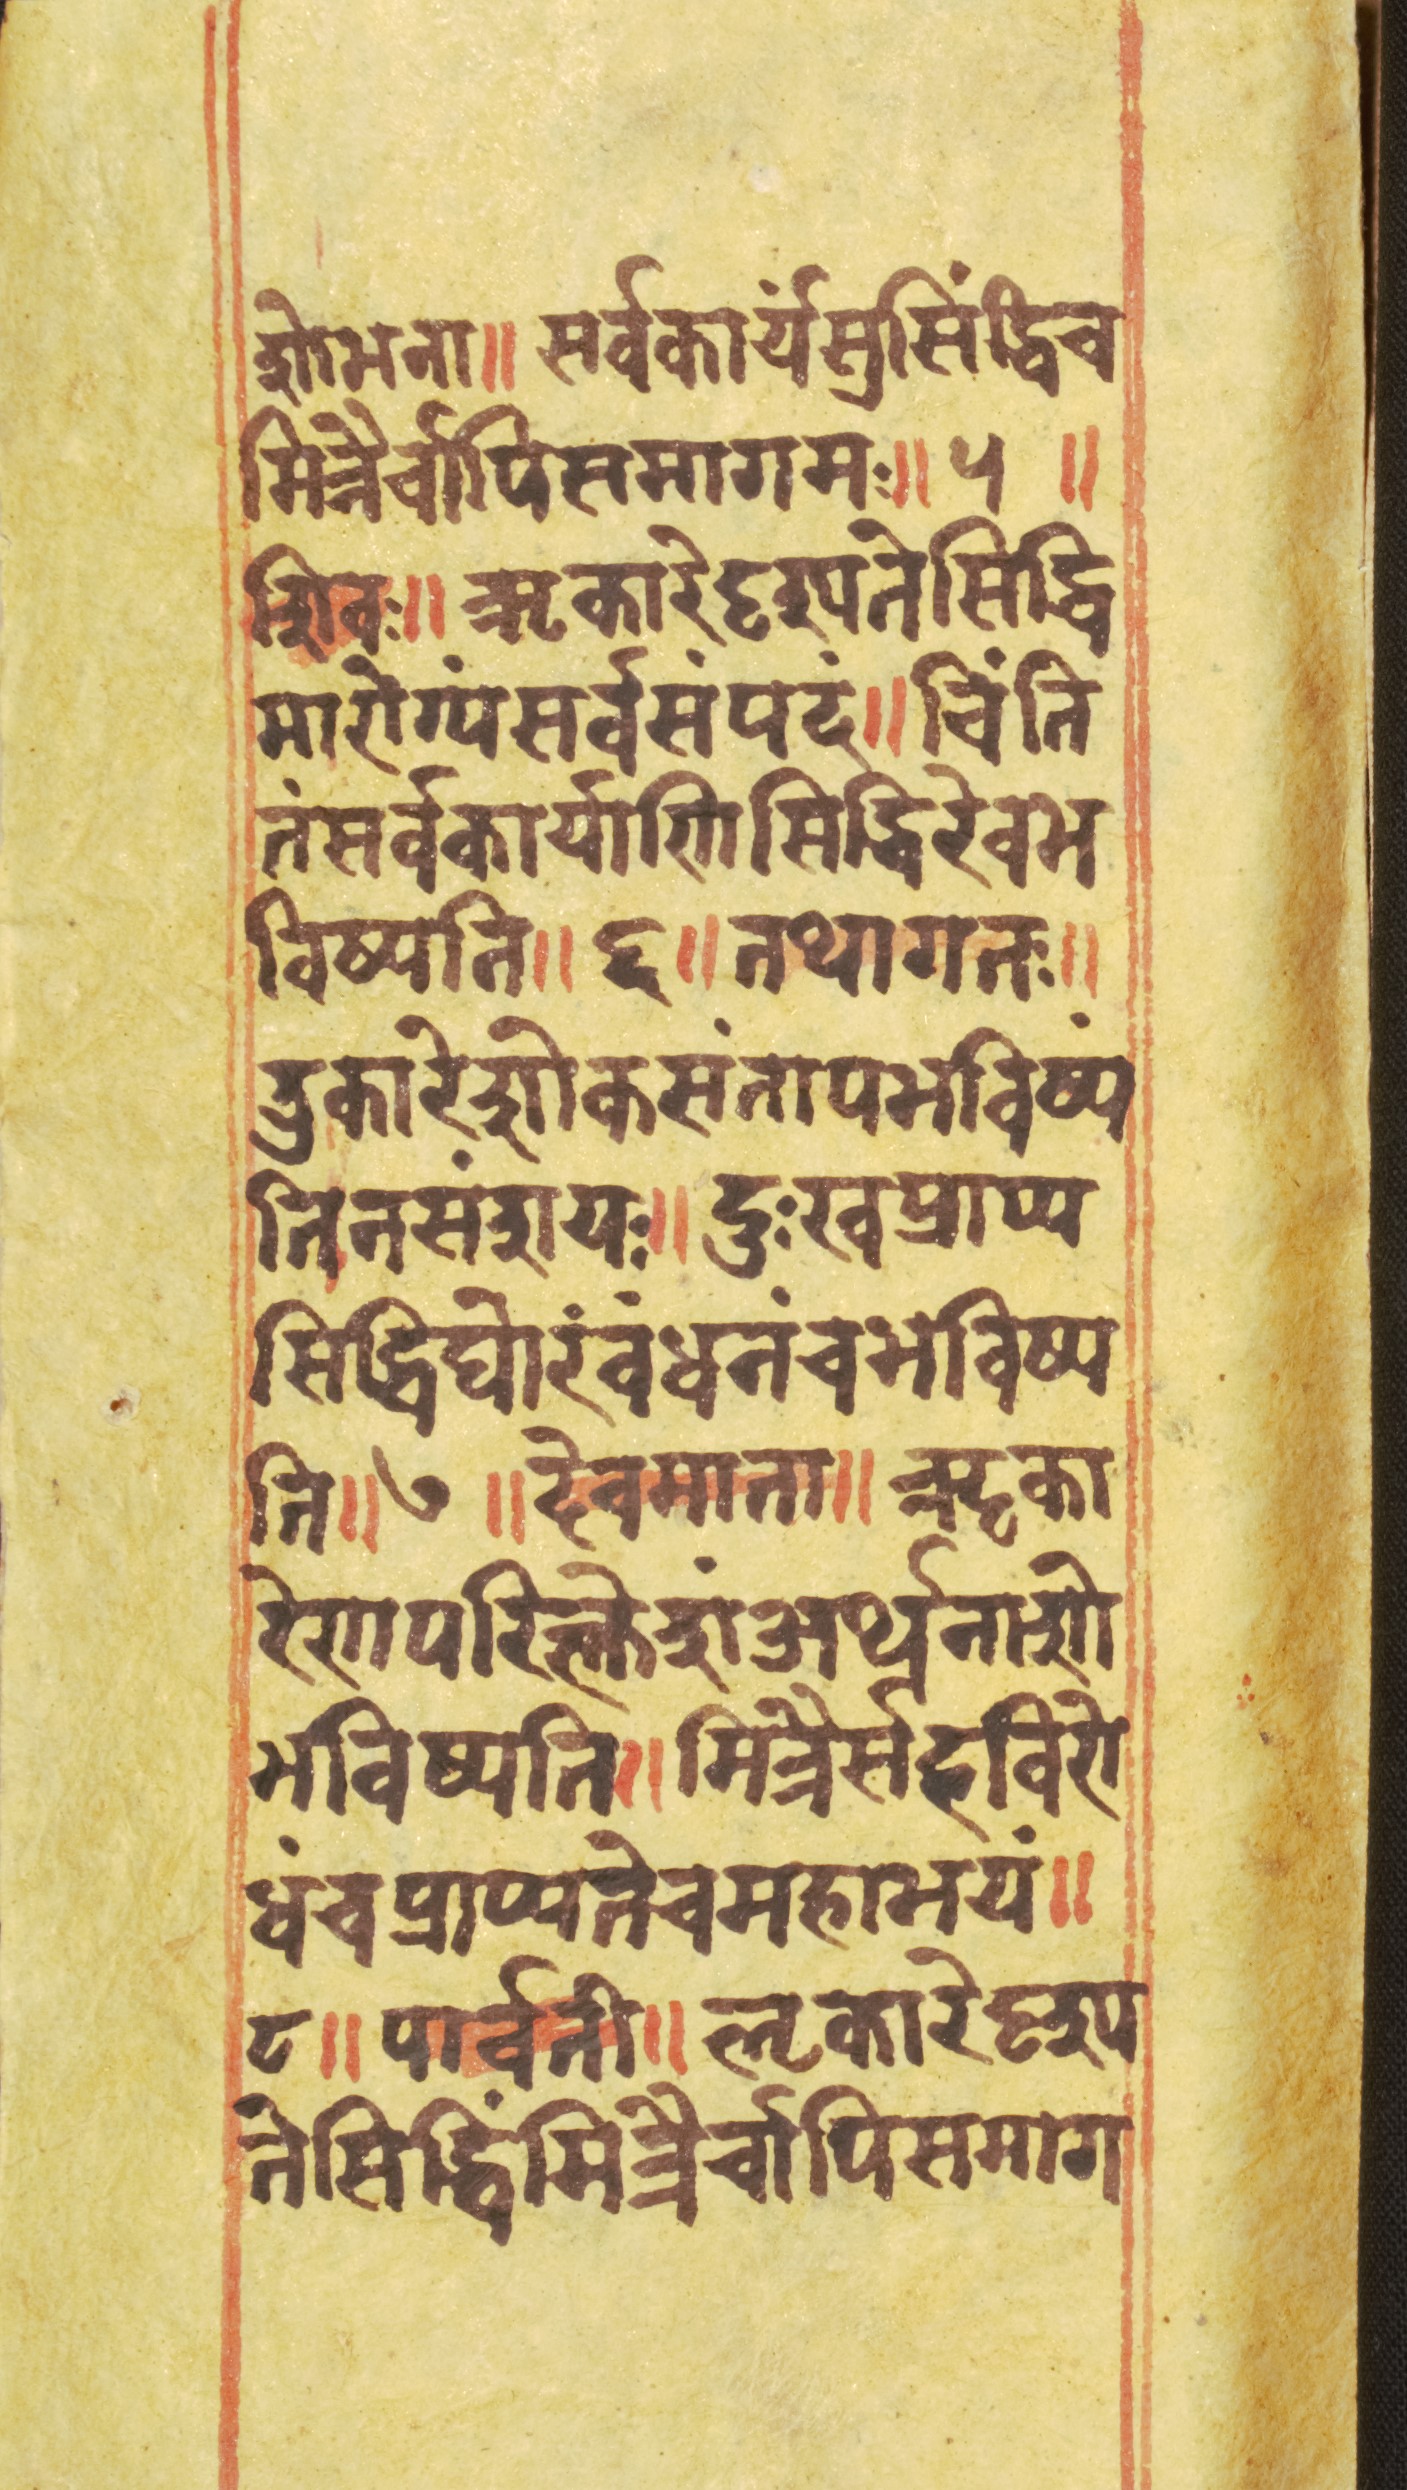 शोभना॥ सर्वकार्यंसुसिंद्धिच
मित्रैर्चापिसमागमः॥ ५ ॥
शिवः॥ ऋकारेदृश्यतेसिद्धि
मारोग्यंसर्वसंपदं॥ चिंति
तंसर्वकार्याणिसिद्धिरेवभ
विष्यति॥ ६॥ तथागतः॥
उकारेशोकसंतापभविष्यं
तिनसंशयः॥ दुःखप्राप्य
सिद्धिघोरंवंधनंचभविष्य
ति॥ ७ ॥ देवमाता॥ ॠका
रेणपरिक्लेशंअर्थनाशो
भविष्यति॥ मित्रैर्सहविरो
धंचप्राप्यतेचमहाभयं॥
८॥ पार्वती॥ ऌकारेदृश्य
तेसिद्धिंमित्रैर्चापिसमाग